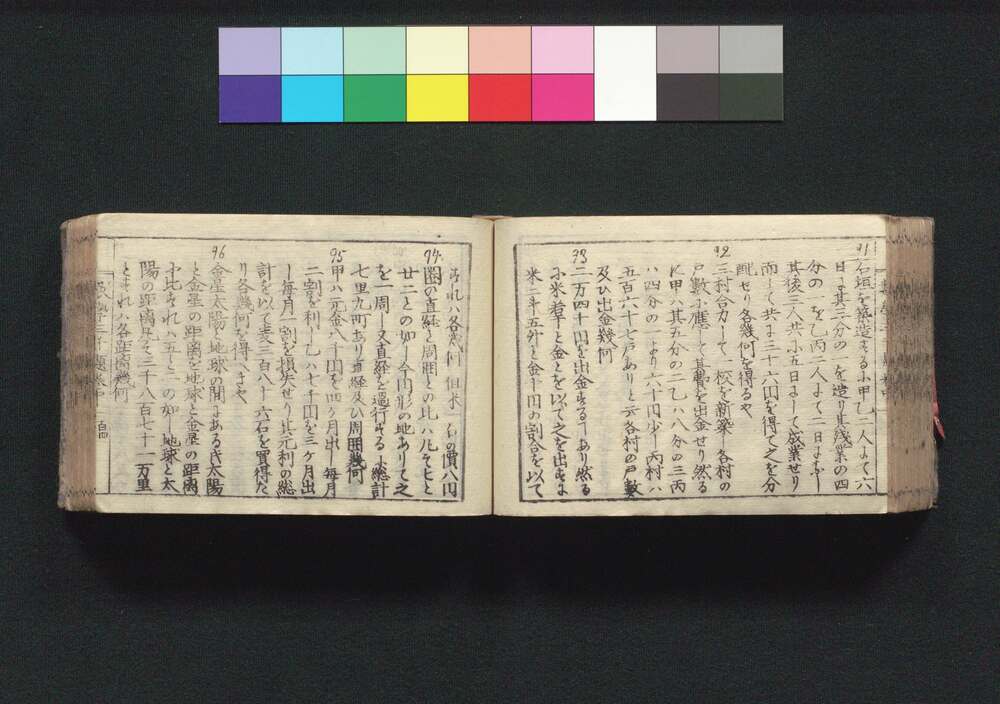 91
石垣を築造するに甲乙二人よて六
日に其三分の一を造り其残業の四
分の一を乙丙二人よて二日よなし
其後三人共に五日よして成業せり
而して共に三十六円を得て之を分
配せり各幾何を得るや
92
三村合力して一校を新築し各村の
戸數に應して其費を出金せり然る
に甲ハ其五分の二乙ハ八分の三丙
ハ四分の一より六十円少し丙村ハ
五百六十七戸ありと云各村の戸數
及ひ出金幾何
93
二万四千円を出金するヿあり然る
に米若干と金とを以て之を出すよ
米二斗五升と金十円の割合を以て
すれハ各幾何但米一石の價八円
94
圏の直経と周囲との比ハ凡そ七と
廿二との如し今円形の地ありて之
を一周し又直経を還行するに総計
七里九町あり直経及ひ周囲幾何
95
甲ハ元金八千円を四ヶ月出し毎月
二割を利し乙ハ七千円を三ヶ月出
し毎月一割を損失せり其元利の総
計を以て麦三百八十六石を買得た
り各幾何を得へきや
96
金星太陽と地球の間にある時太陽
と金星の距離を地球と金星の距離
に比すれハ五と二の如し地球と太
陽の距離凡そ三千八百七十一万里
とすれハ各距離幾何